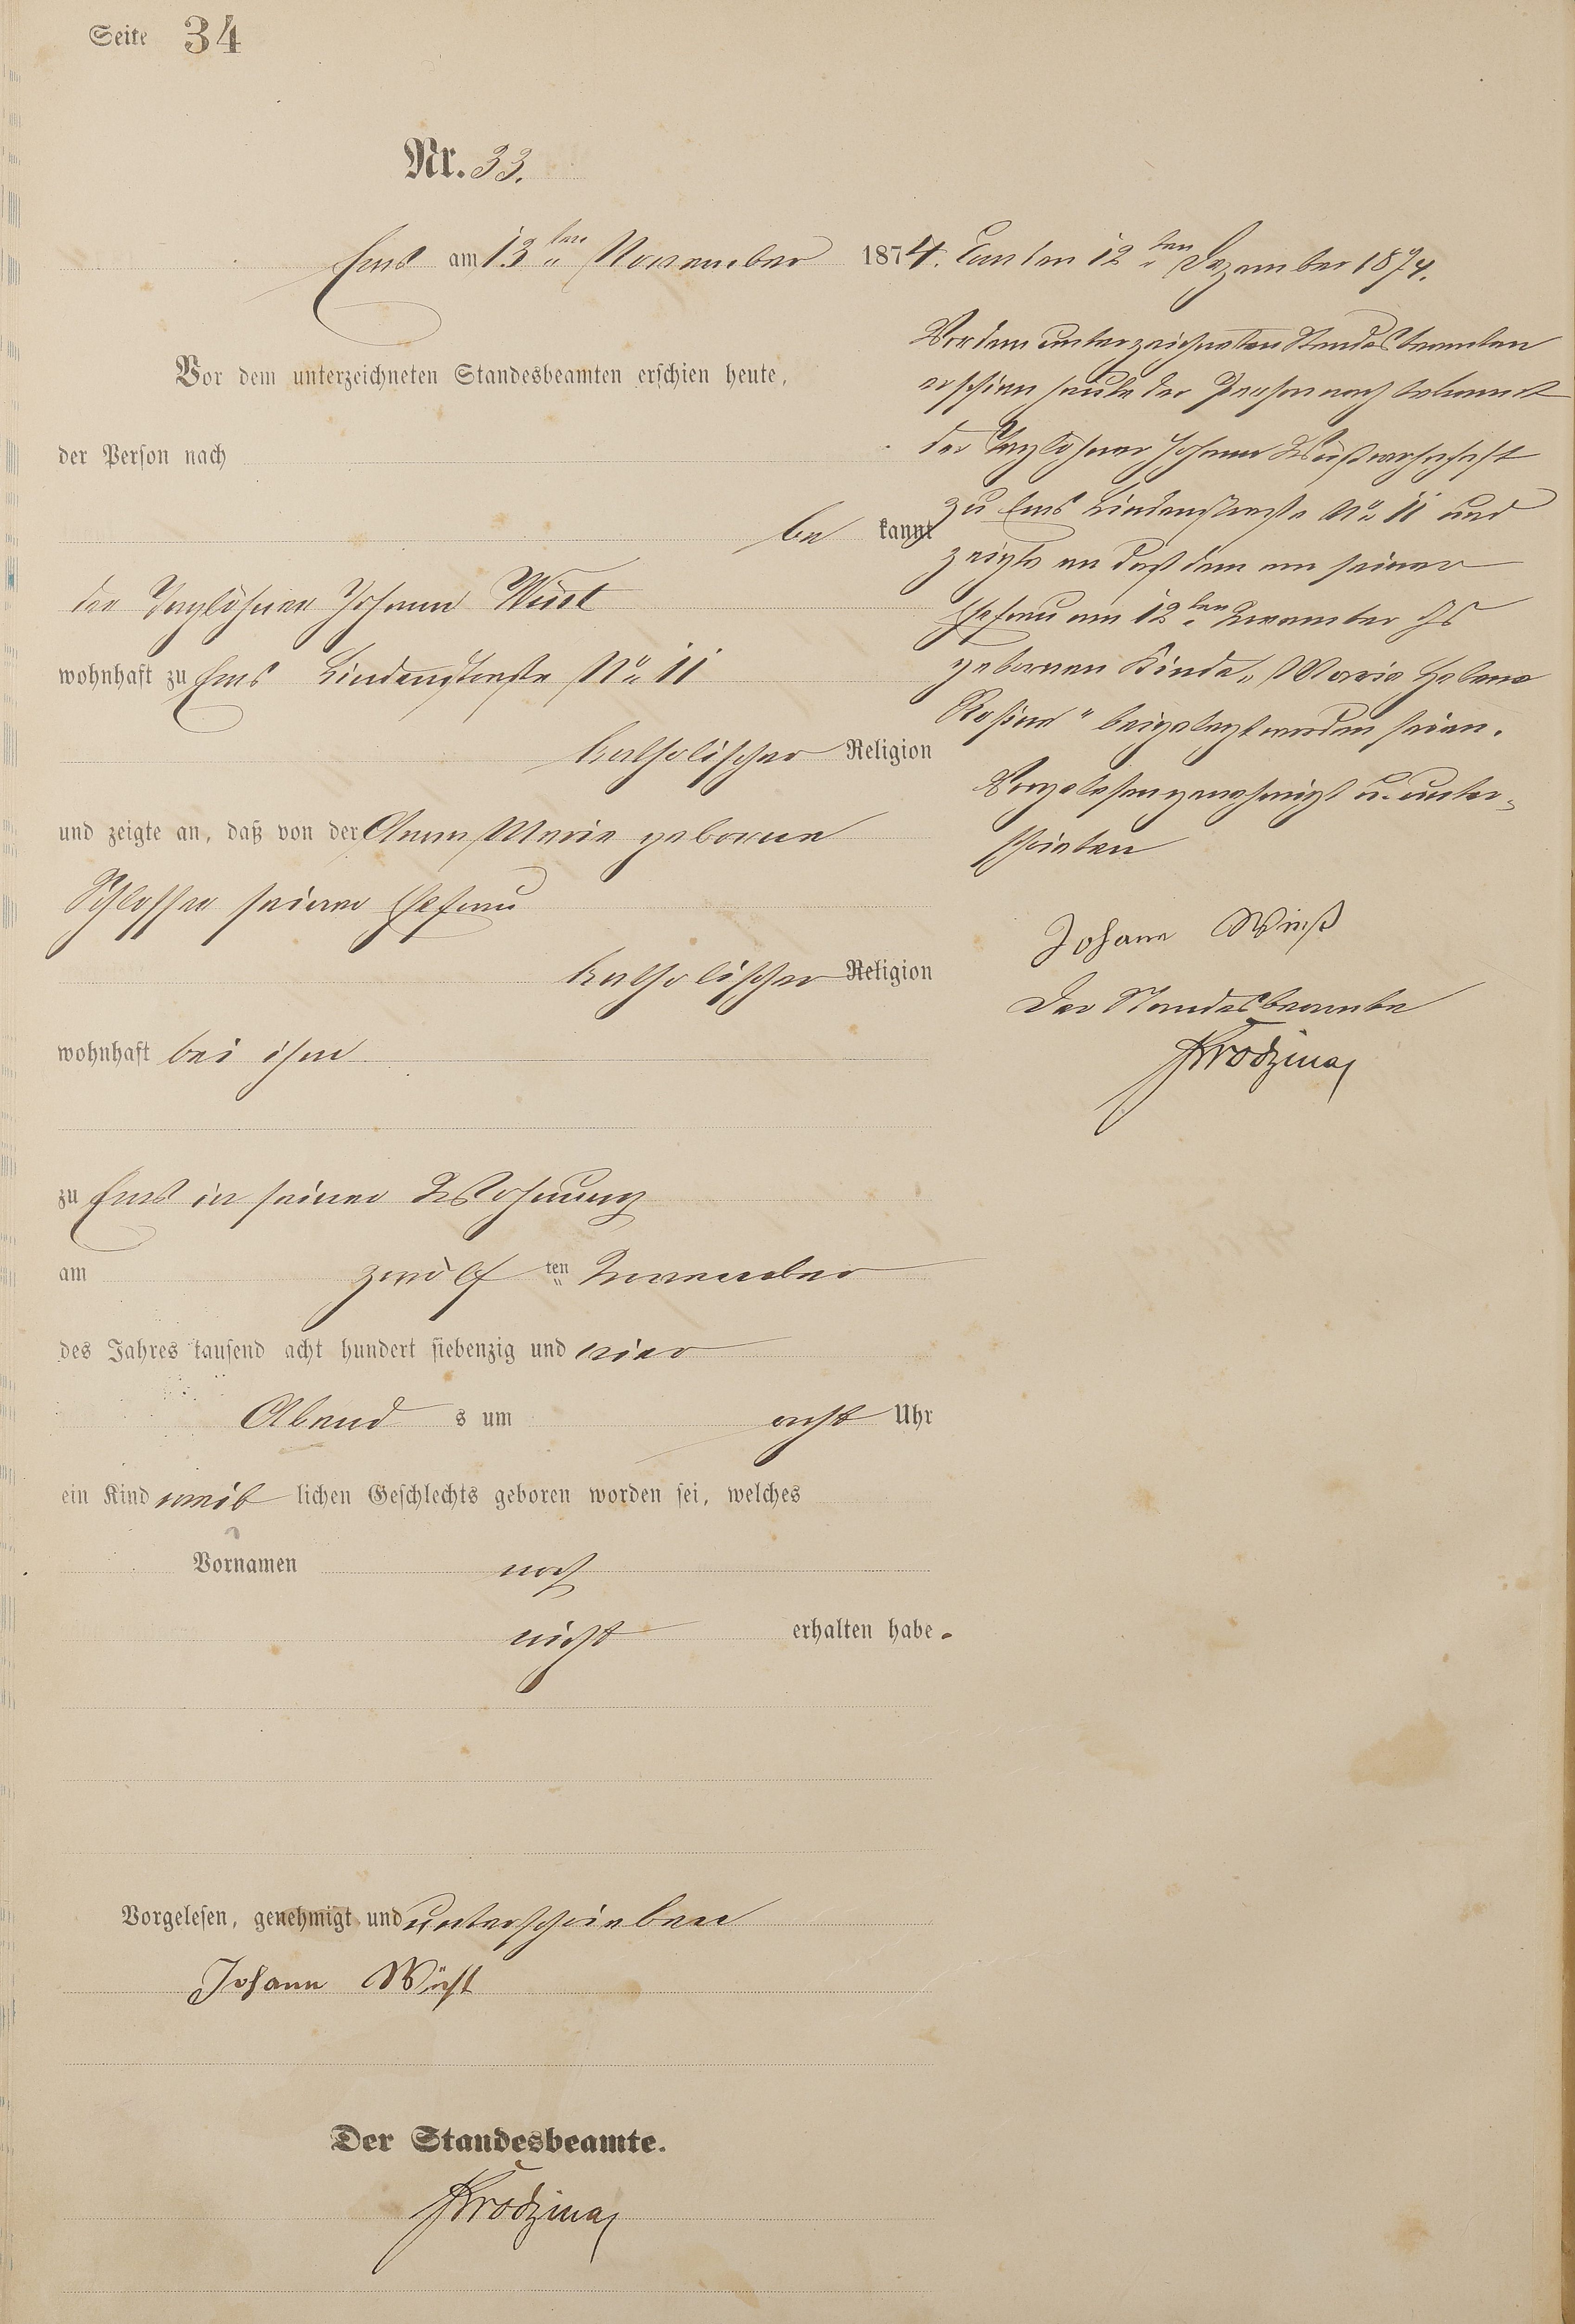 Seite 34
Nr. 33.
Ems am 13ten November 1874.
Vor dem unterzeichneten Standesbeamten erschien heute,
der Person nach
be kannt
der Taglöhner Johann Wüst
wohnhaft zu Ems Lindenstraße No 11
katholischer Religion
und zeigte an, daß von der Anna Maria geborne
Schlosser seiner Ehefrau
katholischer Religion
wohnhaft bei ihm
zu Ems in seiner Wohnung
am zwölf ten November
des Jahres tausend acht hundert siebenzig und vier
Abend s um acht Uhr
ein Kind weib lichen Geschlechts geboren worden sei, welches
Vornamen noch
nicht erhalten habe.
Vorgelesen, genehmigt und unterschrieben
Johann Wüst
Der Standesbeamte.
Ems den 12ten Dezember 1874.
Vor dem unterzeichneten Standesbeamten
erschien heute der Person nach bekannt
der Taglöhner Johann Wüst wohnhaft
zu Ems Lindenstraße No 11 und
zeigte an daß dem von seiner
Ehefrau am 12ten November
gebornen Kinde „Maria Helena
Rosina" beigelegt worden seien.
Vorgelesen genehmigt u. unter-
schrieben
Johann Wüst
Der Standesbeamte